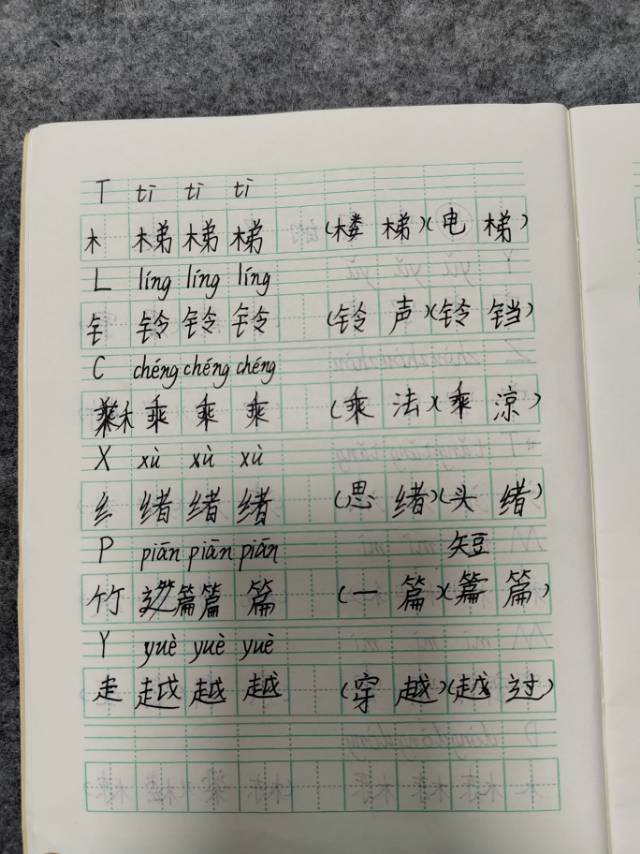 T tī tī tī
木 梯 梯 梯 (楼 梯)(电 梯)
L líng líng líng
钅 铃 铃 铃 (铃 声)(铃 铛)
C chéng chéng chéng
禾 乘 乘 乘 (乘 法)(乘 凉)
X xù xù xù
纟 绪 绪 绪 (思 绪)(头 绪)
P piān piān piān 短
竹 篇 篇 篇 (一 篇)(篇 篇)
Y yuè yuè yuè
走 越 越 越 (穿 越)(越 过)